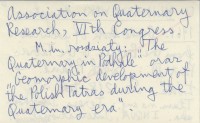 Association on Quaternary
Research, VIth Congress.
M. in. rozdziały: "The
Quaternary in Podhale" oraz
"Geomorphic development of
the Polish Tatras during the
Quaternary era".